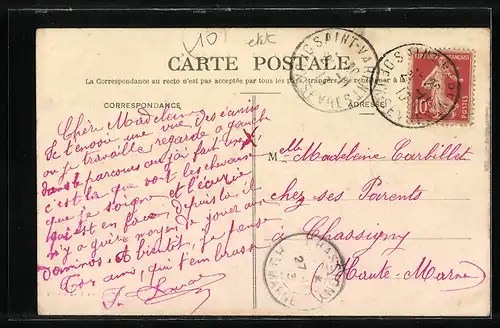 (10)
CARTE POSTALE
La Correspondance au recto n'est pas acceptée par tous les pays étrangers, se renseigner
CORRESPONDANCE
ADRESSE
Chère Madeleine
Je t'envoie une vue des écuries
où je travaille regarde à gauche
dans le parcours où j'ai fait une X
c'est là que sont les chevaux
que je soigne et l'écurie
qui est en face, depuis le
n'y a guère moyen de jouer aux
dominos, et bientôt, je pense
Ton ami, qui t'embrasse
Melle Madeleine Tarbillet
chez ses Parents
à Chassigny
Haute-Marne
RÉPUBLIQUE FRANÇAISE
10
CHASSIGNY
27
HTE MARNE